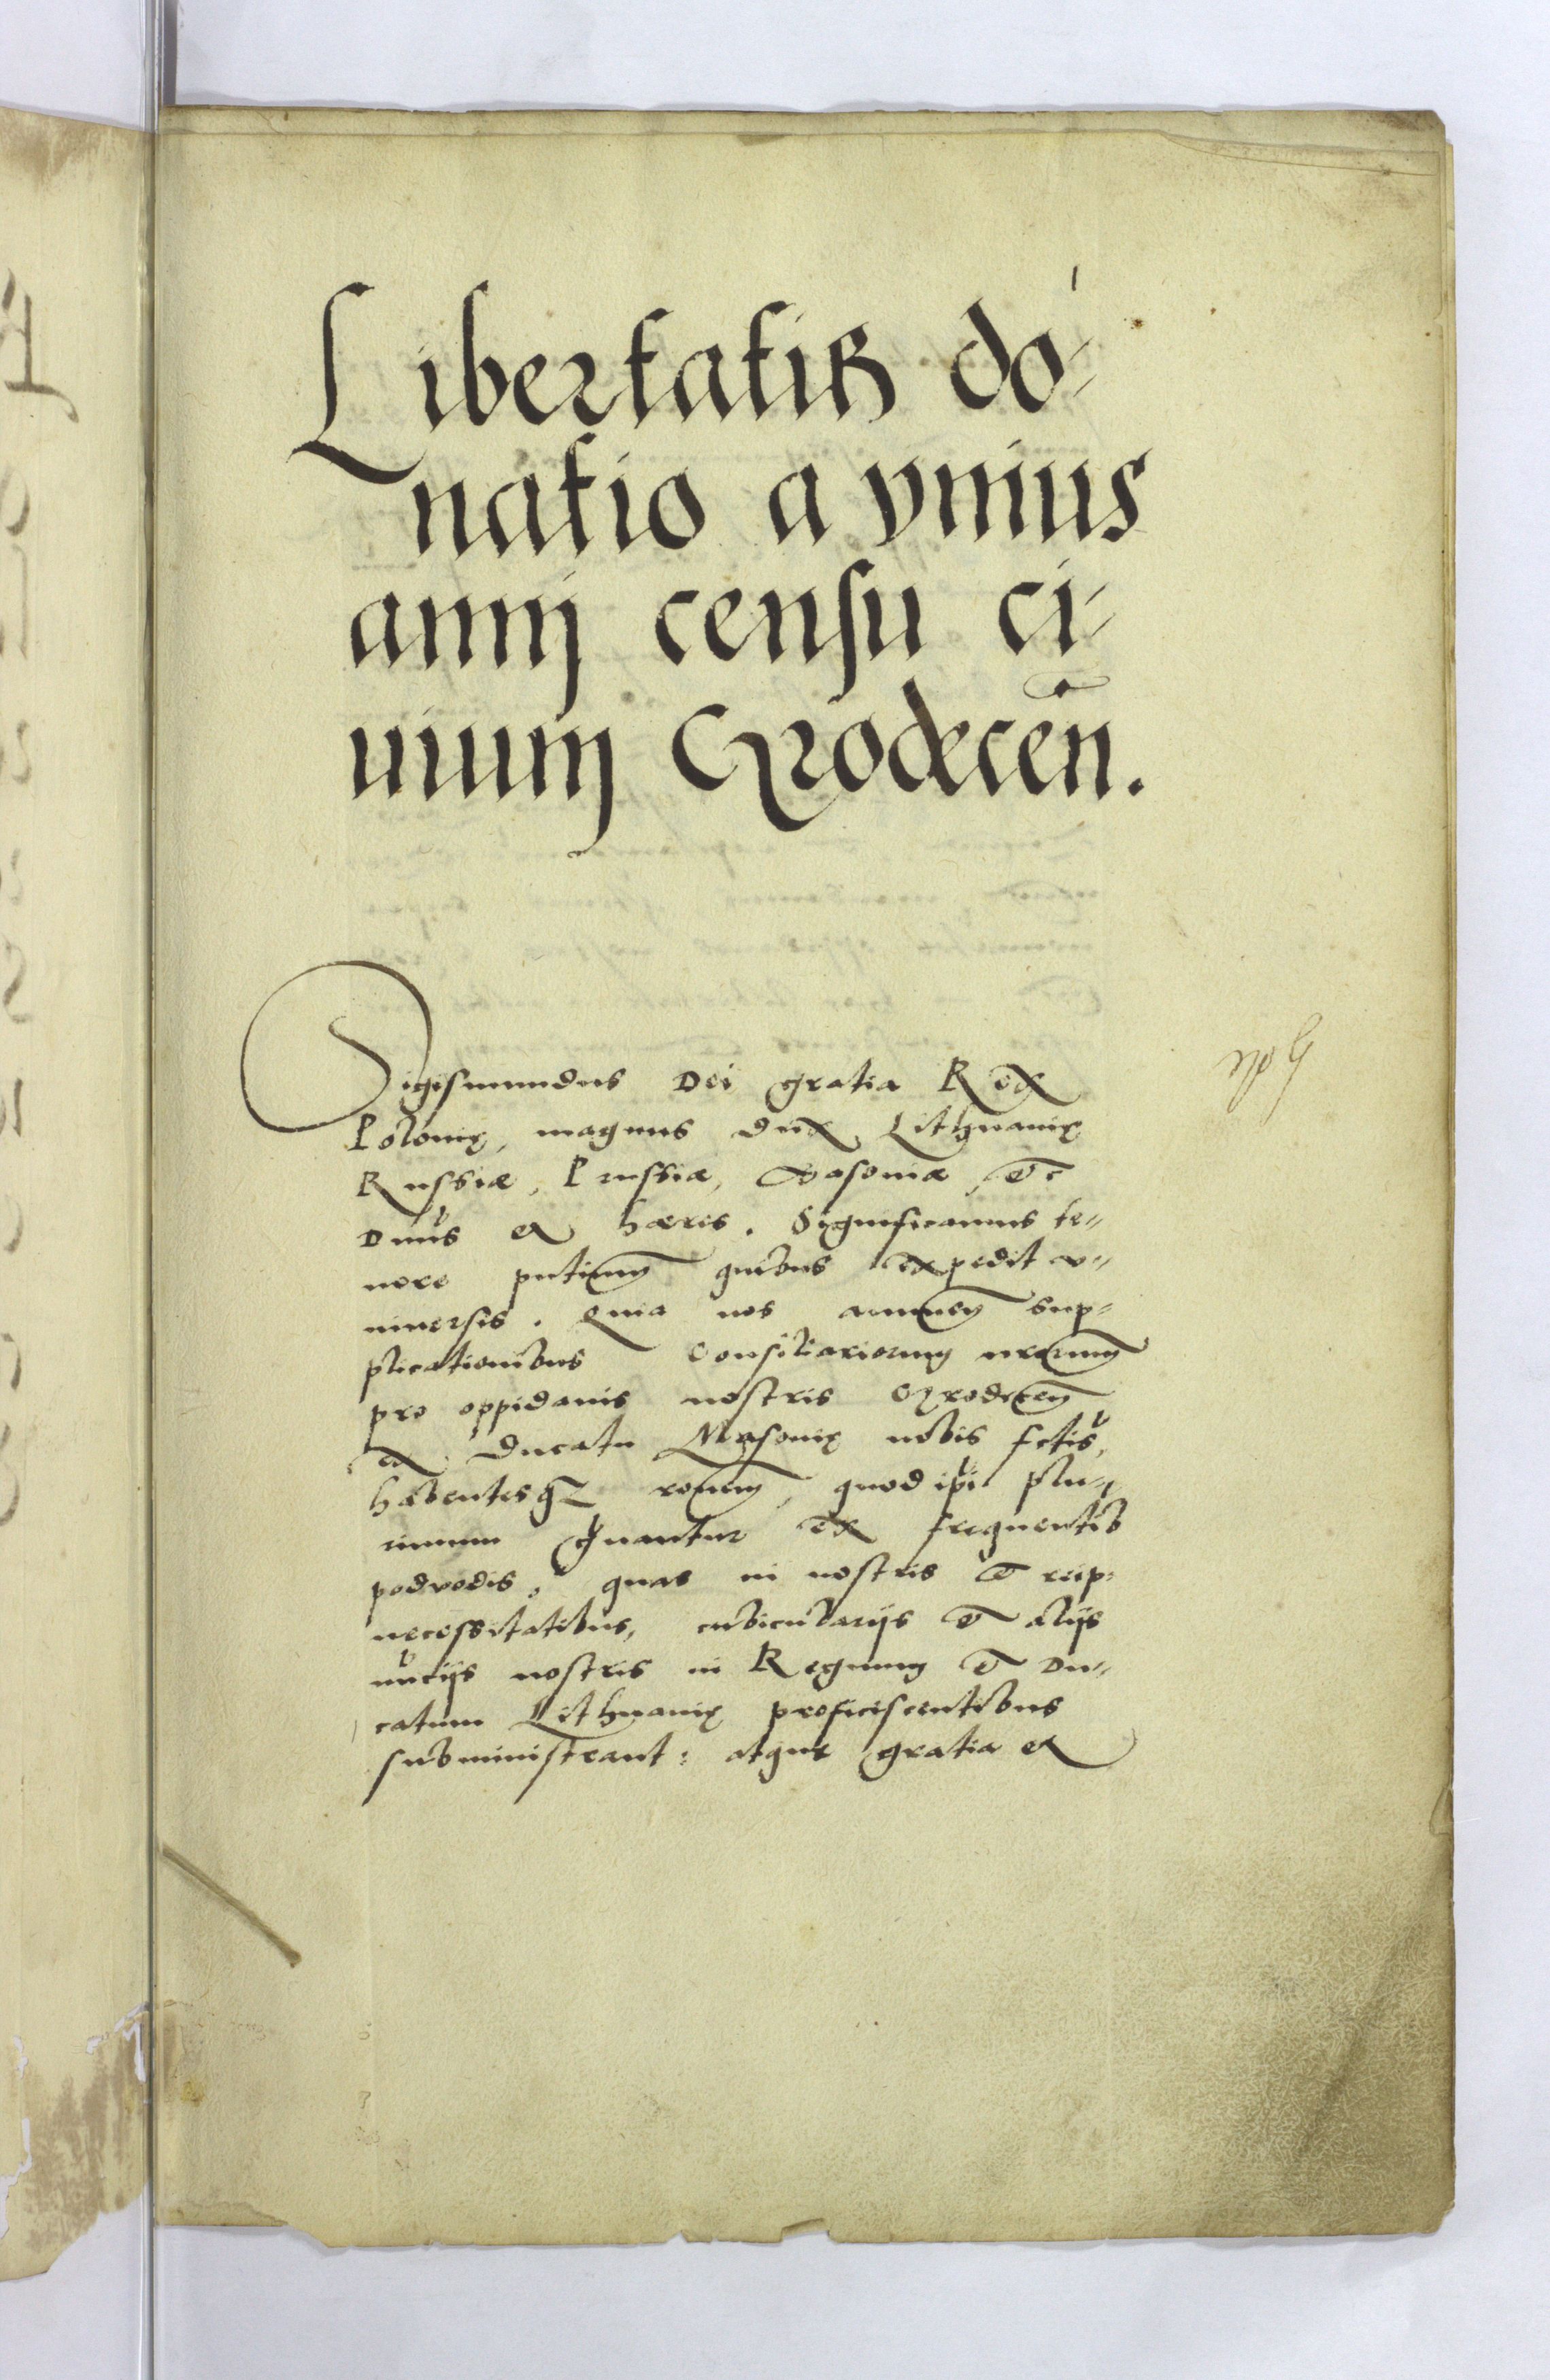 Libertatis do-
natio a vnius
annj censu ci-
uium Grodecen̄.
Sigismundus Dei gratia Rex
Polonię, magnus dux Lithuanię
Russiæ, Prussiæ, Masoniæ etc
Dnus et hæres. Significamus te-
nore pntium quibus expedit v-
niuersis. Quia nos annuen sup-
plicationibus Consiliariorum nrorum
pro oppidanis nostris Grodecen
ex Ducatu Masonię nobis fctis,
habentesq ronem, quod ipi plu-
rimum grauantur ex frequentib
podvodis, quas in nostris et reip:
necessitatibus, cubicularijs et alijs
nuncijs nostris in Regnum et Du-
catum Lithuanię proficiscentibus
subministrant: atque gratia et